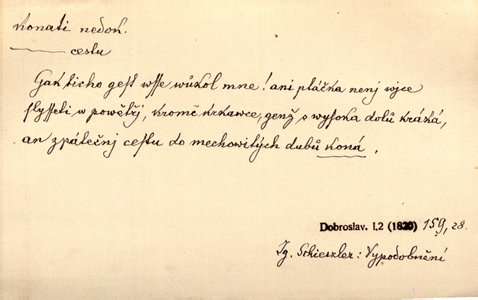 konati nedok.
cestu
Gak ticho gest wsse wůkol mne! ani ptáčka nenj wjce
slysseti w powětřj, kromě krkawce, genž s wysoka dolů kráká,
an zpátečnj cestu do mechowitých dubů koná.
Dobroslav. I,2 (1820) 159, 28.
Ig. Schieszler: Vypodobnění